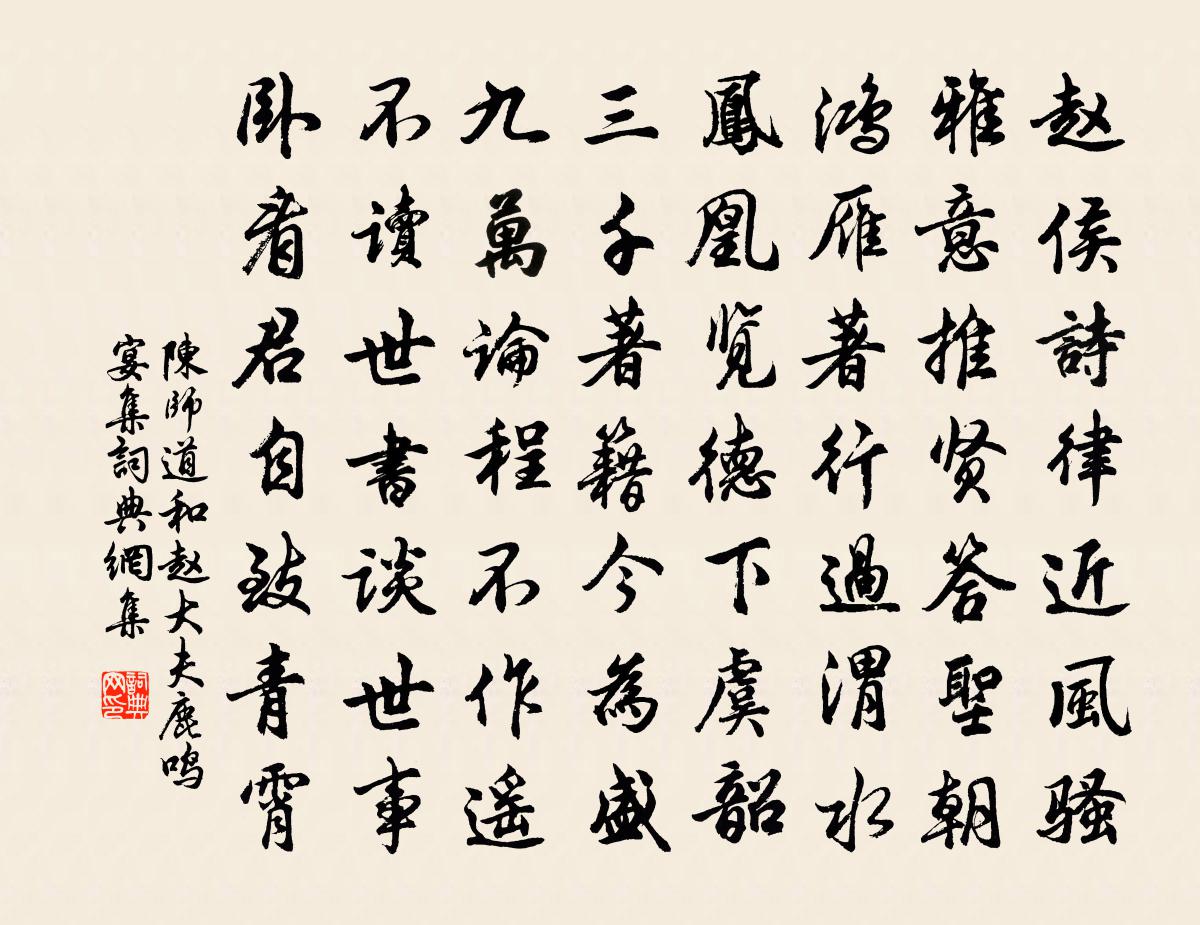 赵侯詩律近風骚
雅意推贤答聖朝
鸿雁著行過渭水
鳳凰览德下虞韶
三千著籍今為盛
九萬論程不作遥
不讀世書谈世事
卧看君自致青霄
陳師道和赵大夫鹿鸣
宴集詞典網集
詞典
网印